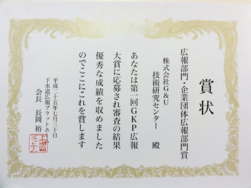 賞状
広報部門・企業団体広報部門賞
株式会社G&U
技術研究センター 殿
あなたは第一回GKP広報
大賞に応募され審査の結果
優秀な成績を収めました
のでここにこれを賞します
平成二十五年七月三十日
下水道広報プラットホーム
会長 長岡 裕